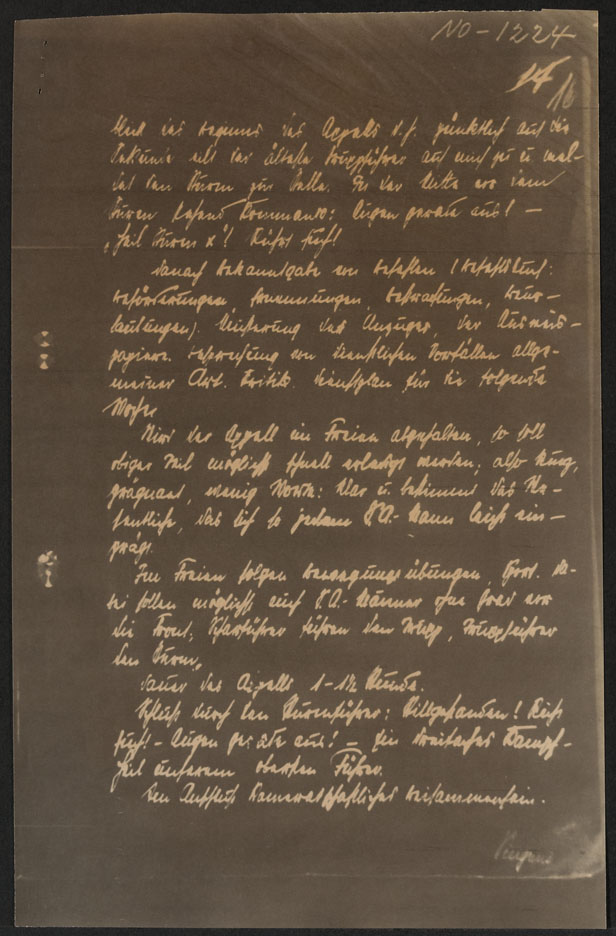 NO-1224
14
16
des Appells d.h. pünktlich auf die
Sekunde der älteste Truppführer auf und
den Sturm zur Stelle. In der Mitte vor dem
Sturm stehend Kommando: Augen gerade aus! —
„Heil Sturm x“! Rührt Euch!
Danach Bekanntgabe von Befehlen
Beförderungen, Ernennungen, Bestrafungen, Beur-
laubungen). Musterung des Anzuges, der Ausweis-
papiere. Besprechung von dienstlichen Vorfällen allge-
meiner Art. Kritik. Dienstplan für die folgende
Woche.
Wird der Appell im Freien abgehalten, so soll
obiger Teil möglichst schnell erledigt werden; also kurz,
prägnant, wenig Worte: klar u. bestimmt das We-
sentliche, das sich so jedem S.A.-Mann leicht ein-
prägt.
Im Freien folgen Bewegungsübungen, Da-
bei sollen möglichst auch S.A.-Männer vor
die Front, Scharführer führen den Trupp, Truppführer
den Sturm.
Dauer des Appells 1-1½ Stunde.
Schluß durch den Sturmführer: Stillgestanden! Richt
Euch! - Augen gerade aus! — Ein dreifaches Kampf-
heil unserem obersten Führer.
Im Anschluß kameradschaftliches Beisammensein.